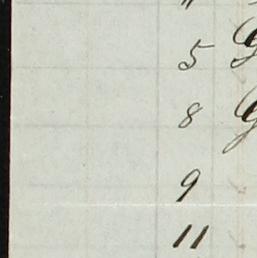 "
5
8
9
11